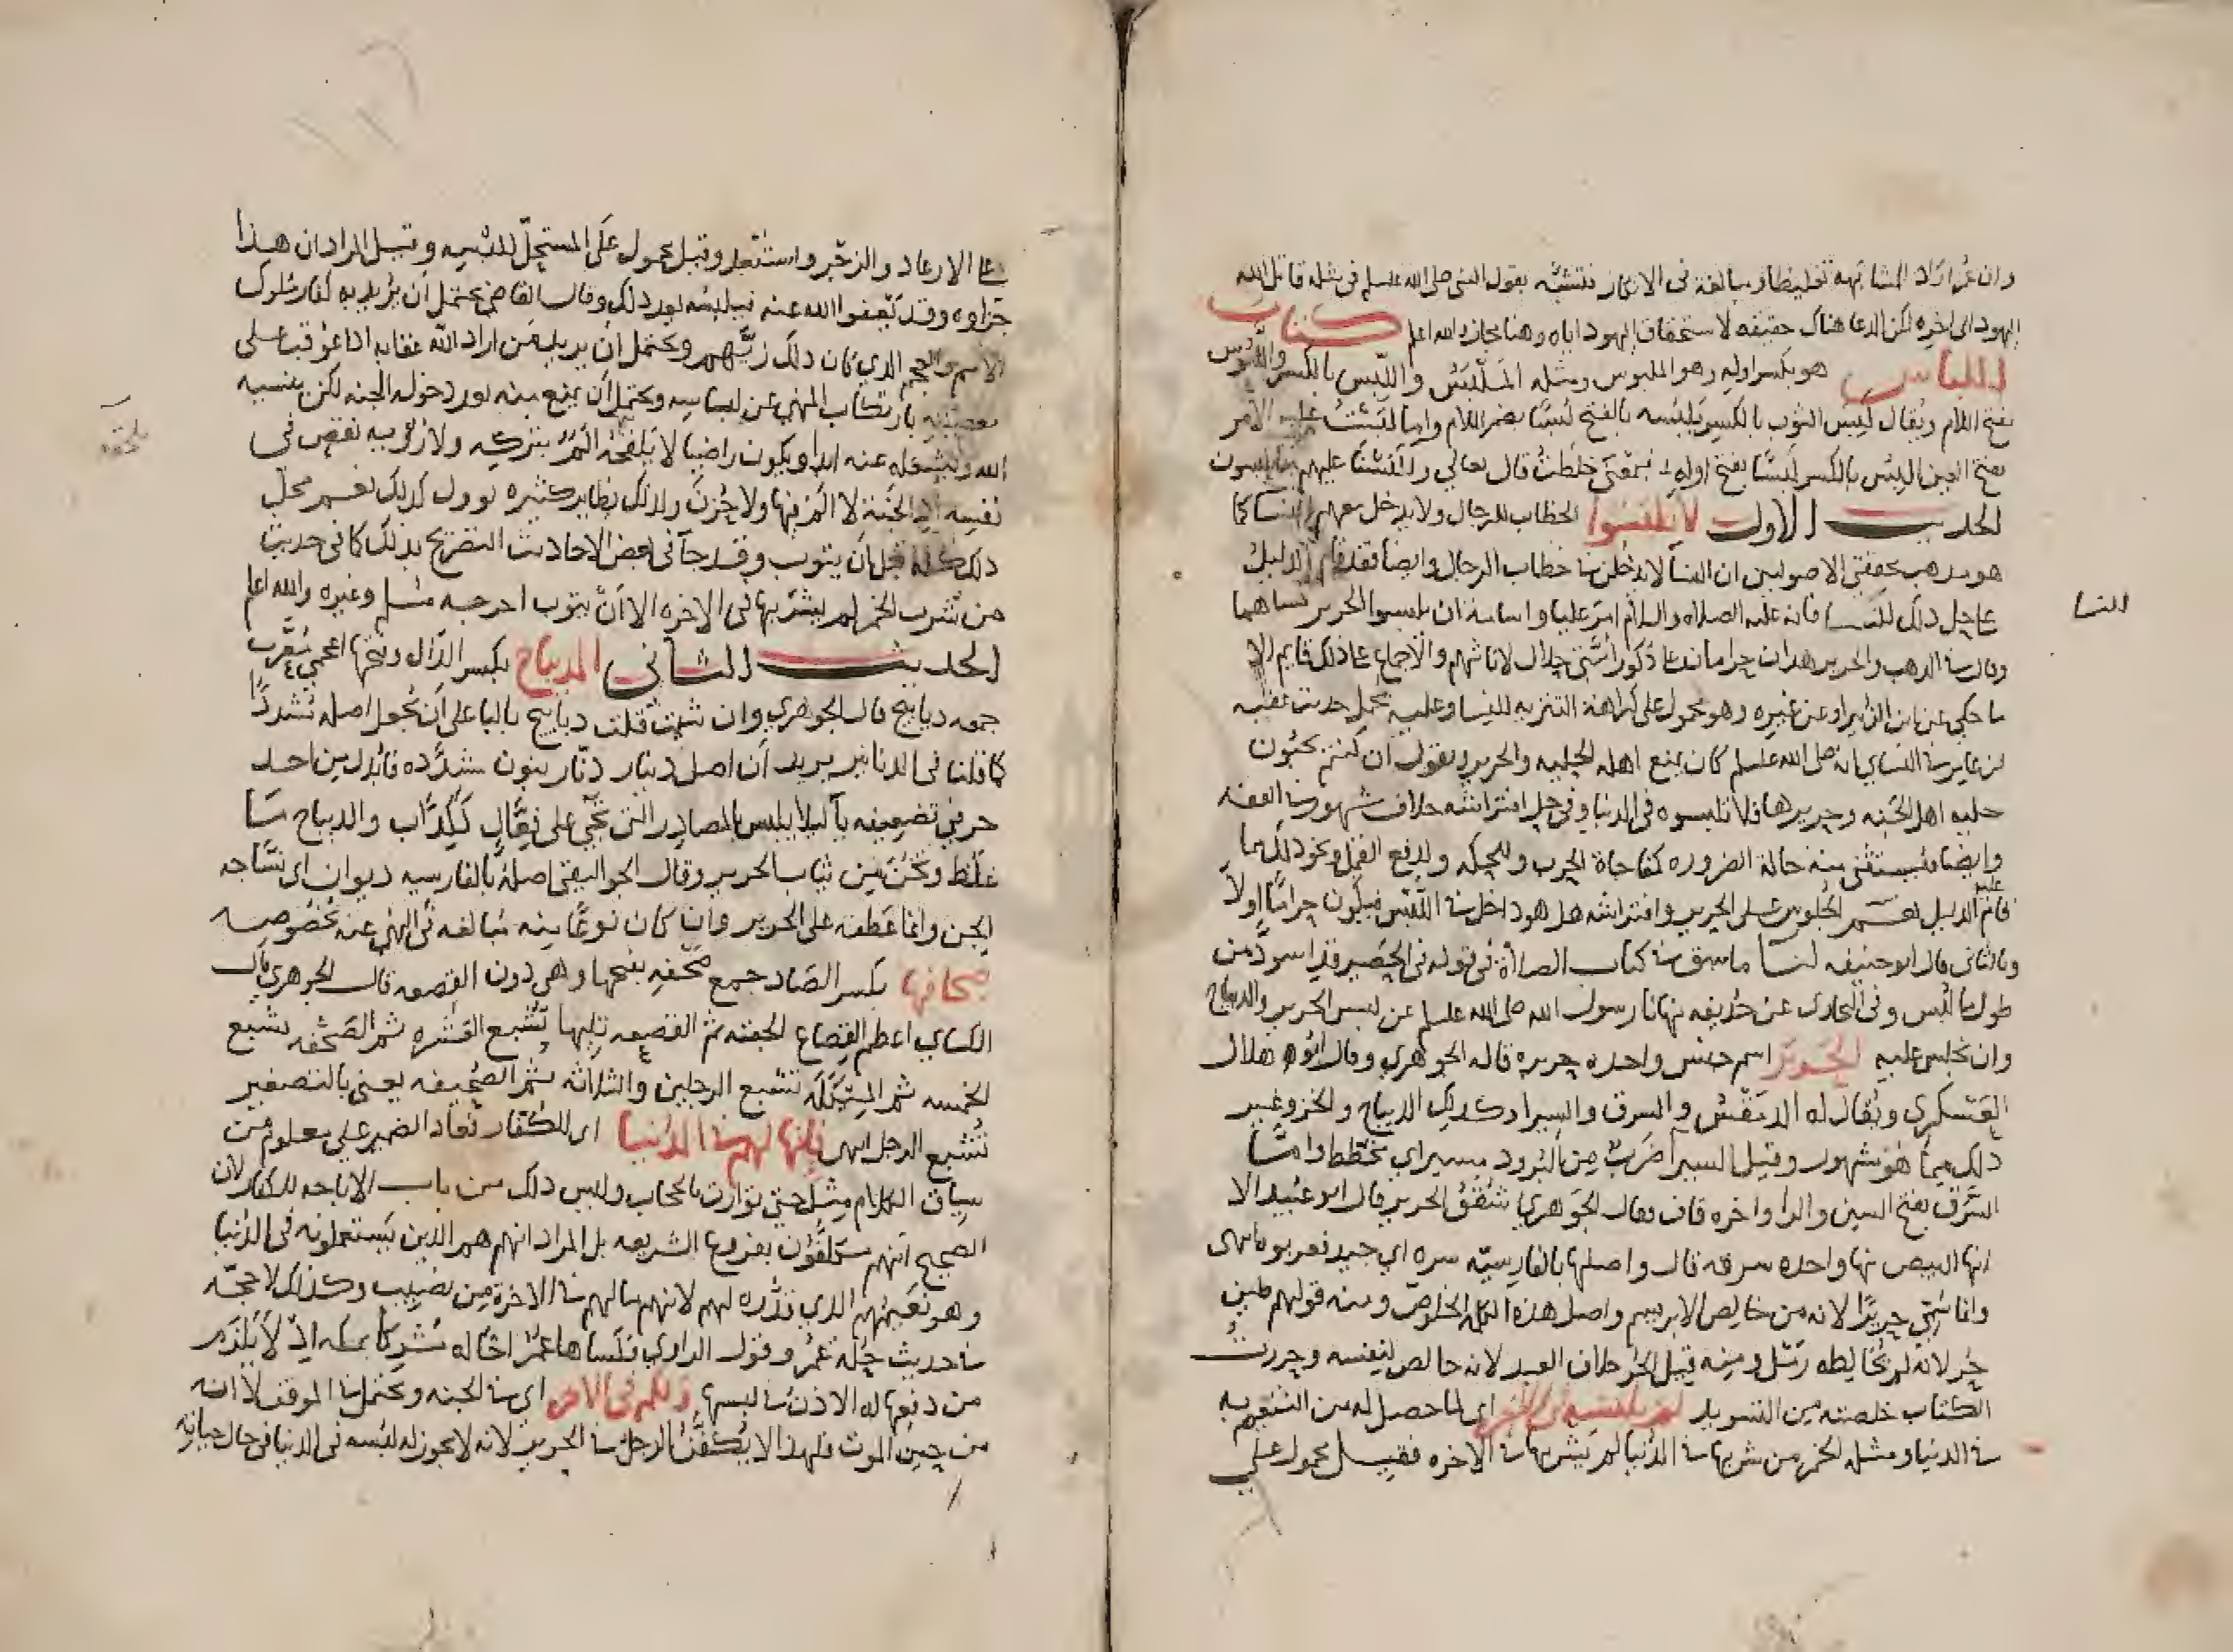 وان عمر اراد المشابهة تغليظا ومبالغة فى الانكار فتشبه بقول النبي صلى الله عليه وسلم فى مثله قاتل الله
اليهود الى اخره لكن الدعا هناك حقيقه لاستحقاق اليهود اياه وهنا مجاز والله اعلم كتاب
اللباس هو بكسر اوله وهو الملبوس ومثله الملبس واللبس بالكسر واللبوس
بفتح اللام ويقال لبس الثوب بالكسر يلبسه بالفتح لبسا بضم اللام واما لبست عليه الامر
بفتح العين البس بالكسر لبسا بفتح اوله فبمعنى خلطت قال تعالى وللبسنا عليهم ما يلبسون
الحديث الاول لا تلبسوا الخطاب للرجال ولا يدخل معهم النسا كما
هو مذهب محققى الاصوليين ان النسا لا يدخلن فى خطاب الرجال وايضا فقد قام الدليل
على حل ذلك للنسا فانه عليه الصلاه والسلام امر عليا واسامه ان يلبسوا الحرير نساهما
النسا
وقال فى الذهب والحرير هذان حرامان على ذكور امتى حلال لاناثهم والاجماع على ذلك قايم الا
ما حكى عن ابن الزبير او عن غيره وهو محمول على كراهة التنزيه للنسا وعليه يحمل حديث عقبه
بن عامر فى النساي انه صلى الله عليه وسلم كان يمنع اهله الحليه والحرير ويقول ان كنتم تحبون
حليه اهل الجنه وحريرها فلا تلبسوه فى الدنيا وفى حل افتراشه خلاف مشهور فى الفقه
وايضا فيستثنى منه حالة الضروره كمفاجاة الحرب وللحكه ولدفع القمل ونحو ذلك مما
قام عليه الدليل نعم الجلوس على الحرير وافتراشه هل هو داخل فى اللبس فيكون حراما اولا
وبالثانى قال ابو حنيفه لنا ما سبق فى كتاب الصلاة فى قوله فى الحصير قد اسود من
طول ما لبس وفى البخارى عن حذيفه نهانا رسول الله صلى الله عليه وسلم عن لبس الحرير والديباج
وان نجلس عليه الحرير اسم جنس واحده حريره قاله الجوهري وقال ابو هلال
العسكري ويقال له الدمقس والسرق والسيرا وكذلك الديباج والخز وغير
ذلك مما هو مشهور وقيل السيرا ضرب من البرود مسير اي مخطط واما
السرق بفتح السين والرا واخره قاف فقال الجوهري شقق الحرير قال ابو عبيد الا
انها البيض منها واحده سرقه قال واصلها بالفارسيه سره اي جيد فعربوه انتهى
وانما سمي حريرا لانه من خالص الابريسم واصل هذه الكلمة الخلوص ومنه قولهم طين
حر لانه لم يخالطه رمل ومنه قيل الحر خلاف العبد لانه خالص لنفسه وحررت
الكتاب خلصته من التسويد لم يلبسه فى الاخره اي لما حصل له من التنعم به
فى الدنيا ومثله الخمر من شربها فى الدنيا لم يشربها فى الاخره فقيل محمول على
على الابعاد والزجر واستبعد وقيل محمول على المستحل للبسه وقيل المراد ان هذا
جزاوه وقد يعفوا الله عنه فيلبسه بعد ذلك وقال القاضى يحتمل ان يريد به كفار ملوك
الامم والعجم الذي كان ذلك زيهم ويحتمل ان يريد من اراد الله عقابه اذا عوقب على
معصيته بارتكاب المنهي عن لباسه ويحتمل ان يمنع منه بعد دخوله الجنه لكن ينسيه
الله ويشغله عنه ابدا ويكون راضيا لا يلحقه الم بتركه ولا نزوع به نقص فى
يلحقه
نفسه اذ الجنة لا الم فيها ولا حزن ولذلك نظاير كثيره توول كذلك نعم محل
ذلك كله قبل ان يتوب وقد جا فى بعض الاحاديث التصريح بذلك كما فى حديث
من شرب الخمر لم يشربها فى الاخره الا ان يتوب اخرجه مسلم وغيره والله اعلم
الحديث الثانى الديباج بكسر الدال وفتحها اعجمي معرب
جمعه ديابيج قال الجوهري وان شيت قلت دبابيج بالبا على ان تجعل اصله مشددا
كما قلنا فى الدنانير يريد ان اصل دينار دنار بنون مشدده فابدل من احد
حرفي تضعيفه يا ليلا يلبس بالمصادر التى تجي على فعال ككذاب والديباج ما
غلظ وثخن من ثياب الحرير وقال الجواليقى اصله بالفارسيه ديوان اى نساجه
الجن وانما عطفه على الحرير وان كان نوعا منه مبالغه فى النهي عنه بخصوصه
صحافها بكسر الصاد جمع صحفه بفتحها وهى دون القصعه قال الجوهري قال
الكساي اعظم القصاع الجفنه ثم القصعه تليها تشبع العشره ثم الصحفه تشبع
الخمسه ثم الميكله تشبع الرجلين والثلاثه ثم الصحيفه يعنى بالتصغير
تشبع الرجل انتهى فانها لهم فى الدنيا اى للكفار فعاد الضمير على معلوم من
سياق الكلام مثل حتى توارت بالحجاب وليس ذلك من باب الاباحه للكفار لان
الصحيح انهم مكلفون بفروع الشريعه بل المراد انهم هم الذين يستعملونه فى الدنيا
وهو نعيمهم الذي قدره لهم لانهم ما لهم فى الاخرة من نصيب وكذلك لا حجه
فى حديث حله عمر وقول الراوي فكساها عمر اخا له مشركا بمكه اذ لا يلزم
من دفعها له الاذن فى لبسها ولكم فى الاخره اى فى الجنه ويحتمل فى الموقف لا انه
من حين الموت فلهذا لا يكفن الرجل فى الحرير لانه لا يجوز له لبسه فى الدنيا فى حال حياته